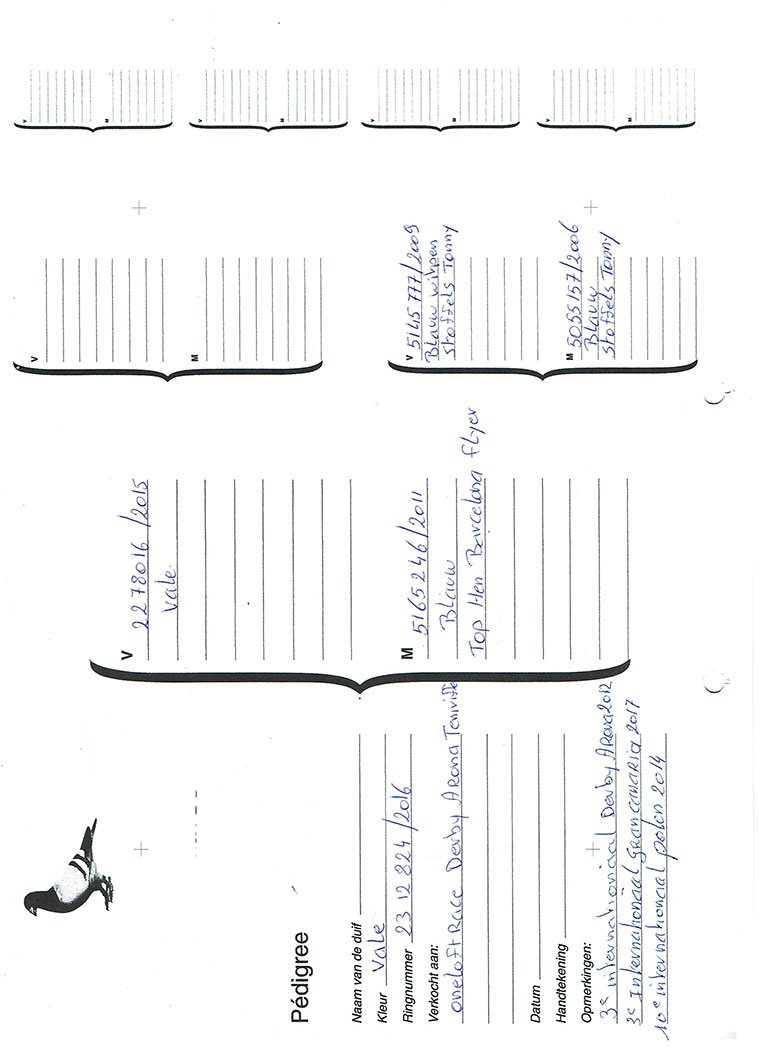 Pédigree
Naam van de duif
Kleur Vale
Ringnummer 23 12 824 / 2016
Verkocht aan:
oneloft Race Derby Arona Teniriffe
Datum
Handtekening
Opmerkingen:
3e internationaal Derby Arona 2012
3e Internationaal Gran canaria 2017
10e internationaal polen 2014
V 2278016 / 2015
Vale
M 5165246 / 2011
Blauw
Top Hen Barcelona flyer
V
M
V 5145777/2009
Blauw witpen
Stoffels Tonny
M 5055157/2006
Blauw
Stoffels Tonny
V
M
V
M
V
M
V
M